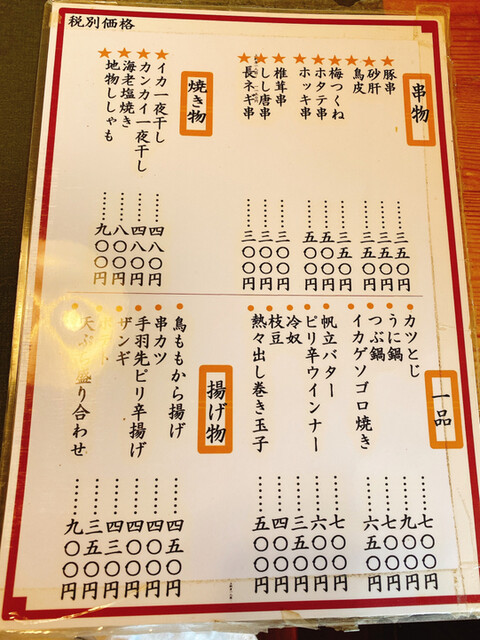 税別価格
串物
豚串……三五〇円
砂肝……三五〇円
鳥皮……三五〇円
梅つくね……三五〇円
ホタテ串……五〇〇円
ホッキ串……五〇〇円
椎茸串……三〇〇円
しし唐串……三〇〇円
長ネギ串……三〇〇円
焼き物
イカ一夜干し……四八〇円
カンカイ一夜干し……四八〇円
海老塩焼き……八〇〇円
地物ししゃも……九〇〇円
一品
カツとじ……七〇〇円
うに鍋……九〇〇円
つぶ鍋……七〇〇円
イカゲソゴロ焼き……六五〇円
帆立バター……七〇〇円
ピリ辛ウインナー……六〇〇円
冷奴……三五〇円
枝豆……四〇〇円
熱々出し巻き玉子……五〇〇円
揚げ物
鳥ももから揚げ……四五〇円
串カツ……四〇〇円
手羽先ピリ辛揚げ……四〇〇円
ザンギ……四三〇円
……三五〇円
盛り合わせ……九〇〇円